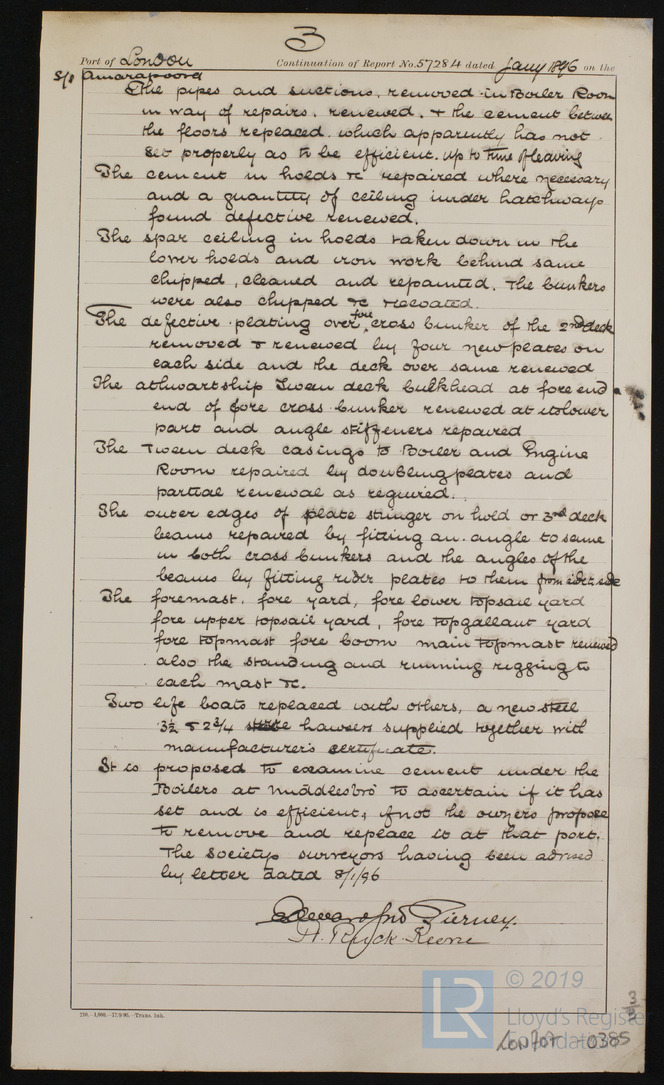 3
Port of London Continuation of Report No. 57284 dated Jany 1896 on the
S/S Amarapoora
The pipes and suctions, removed in Boiler Room
in way of repairs, renewed, & the cement between
the floors replaced which apparently has not
set properly as to be efficient. up to time of leaving
The cement in holds &c repaired where necessary
and a quantity of ceiling under hatchways
found defective renewed.
The spar ceiling in holds taken down in the
lower holds and iron work behind same
chipped, cleaned and repainted. The bunkers
were also chipped &c recoated.
The defective plating over fore cross bunker of the 2nd deck
removed & renewed by four new plates on
each side and the deck over same renewed
The athwartship Tween deck bulkhead at fore end
end of fore cross bunker renewed at its lower
part and angle stiffeners repaired
The Tween deck casings to Boiler and Engine
Room repaired by doubling plates and
partial renewal as required.
The outer edges of plate stringer on hold or 3rd deck
beams repaired by fitting an angle to same
in both cross bunkers and the angles of the
beams by fitting rider plates to them from side to side
The foremast, fore yard, fore lower topsail yard
fore upper topsail yard, fore topgallant yard
fore topmast fore boom main topmast renewed
also the standing and running rigging to
each mast &c.
Two life boats replaced with others, a new steel
3½ & 2¾ hawsers supplied together with
manufacturer's certificate.
It is proposed to examine cement under the
Boilers at Middlesbro' to ascertain if it has
set and is efficient, if not the owners propose
to remove and replace it at that port.
The Society's surveyors having been advised
by letter dated 8/1/96
Tierney.
H. Ruck-Keene
210.-4,000.-17/9/95.-Trans. Ink.
LR
© 2019
Lloyd's Register
Foundation
3/3
LON707-0385